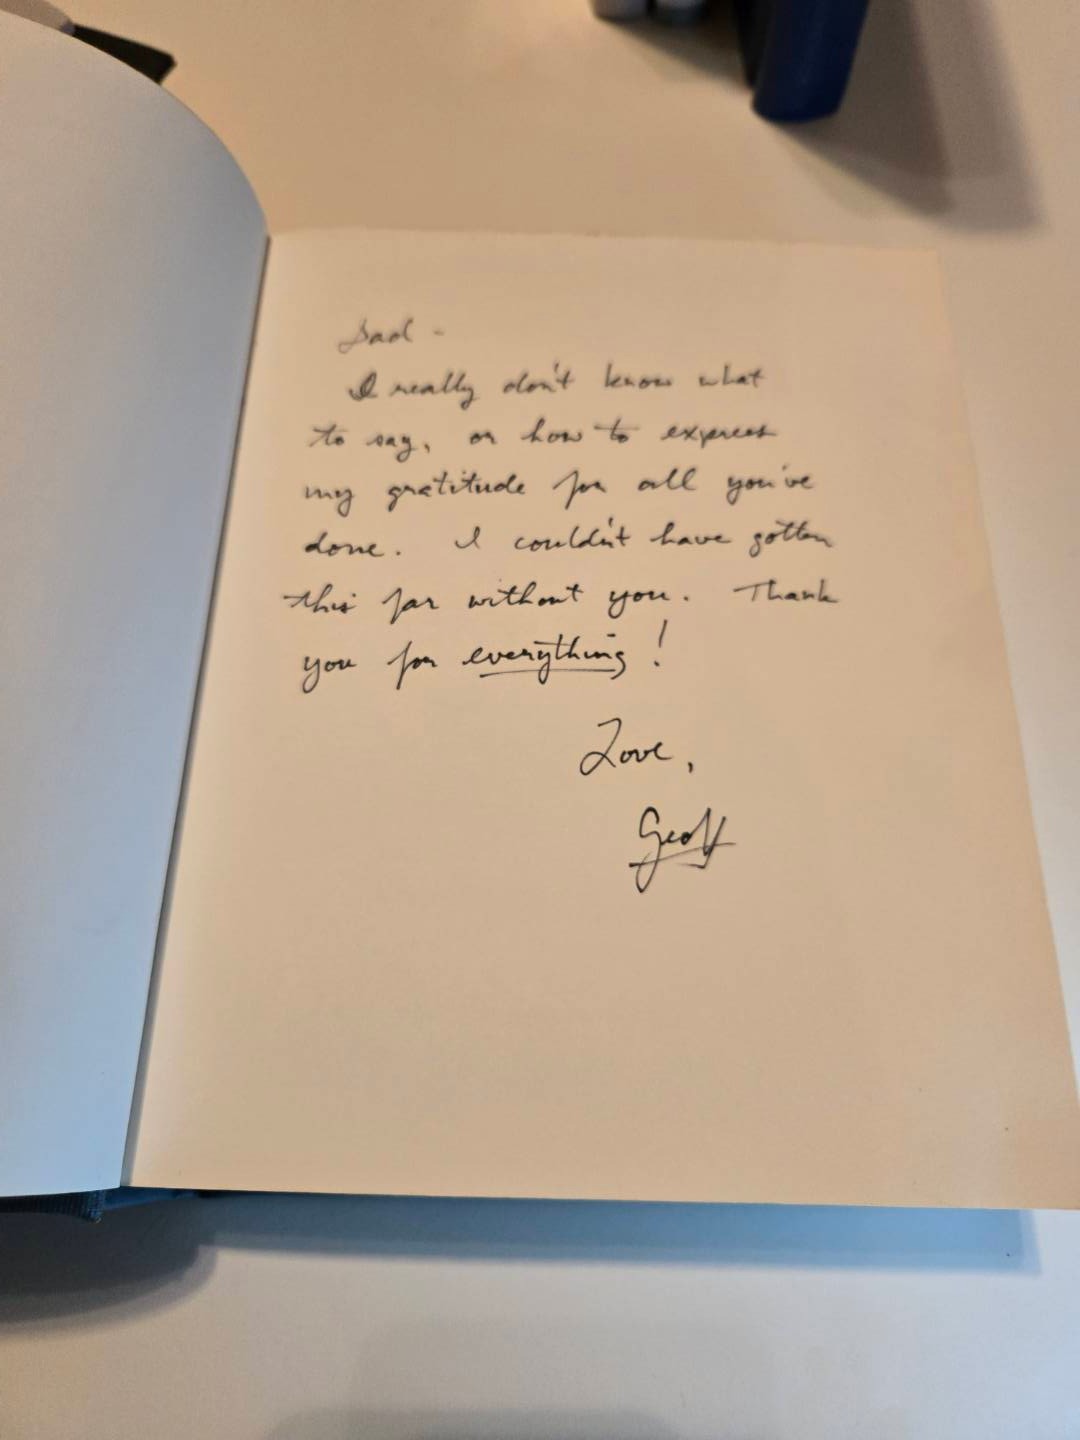 Dad -
I really don't know what
to say, or how to express
my gratitude for all you've
done. I couldn't have gotten
this far without you. Thank
you for everything!
Love,
Geoff